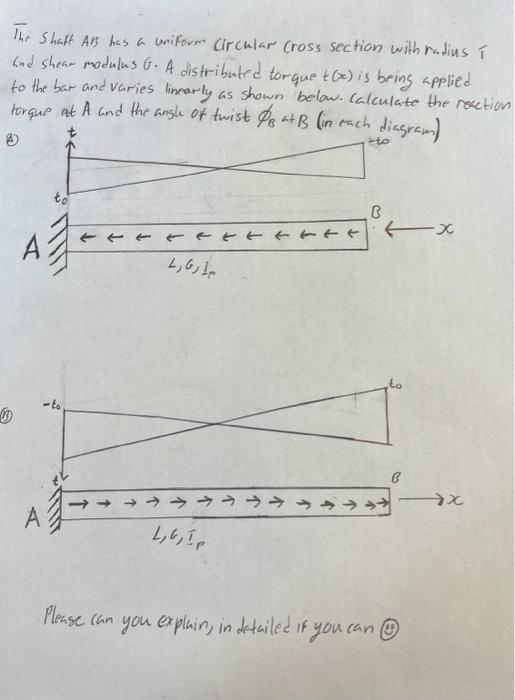 The Shaft AB has a uniform circular cross section with radius r
and shear modulus G. A distributed torque t(x) is being applied
to the bar and varies linearly as shown below. Calculate the reaction
torque at A and the angle of twist ØB at B (in each diagram)
A
t
-to
to
B
A
x
L, G, Ip
to
-to
B
t
B
A
x
L, G, Ip
Please can you explain, in detailed if you can